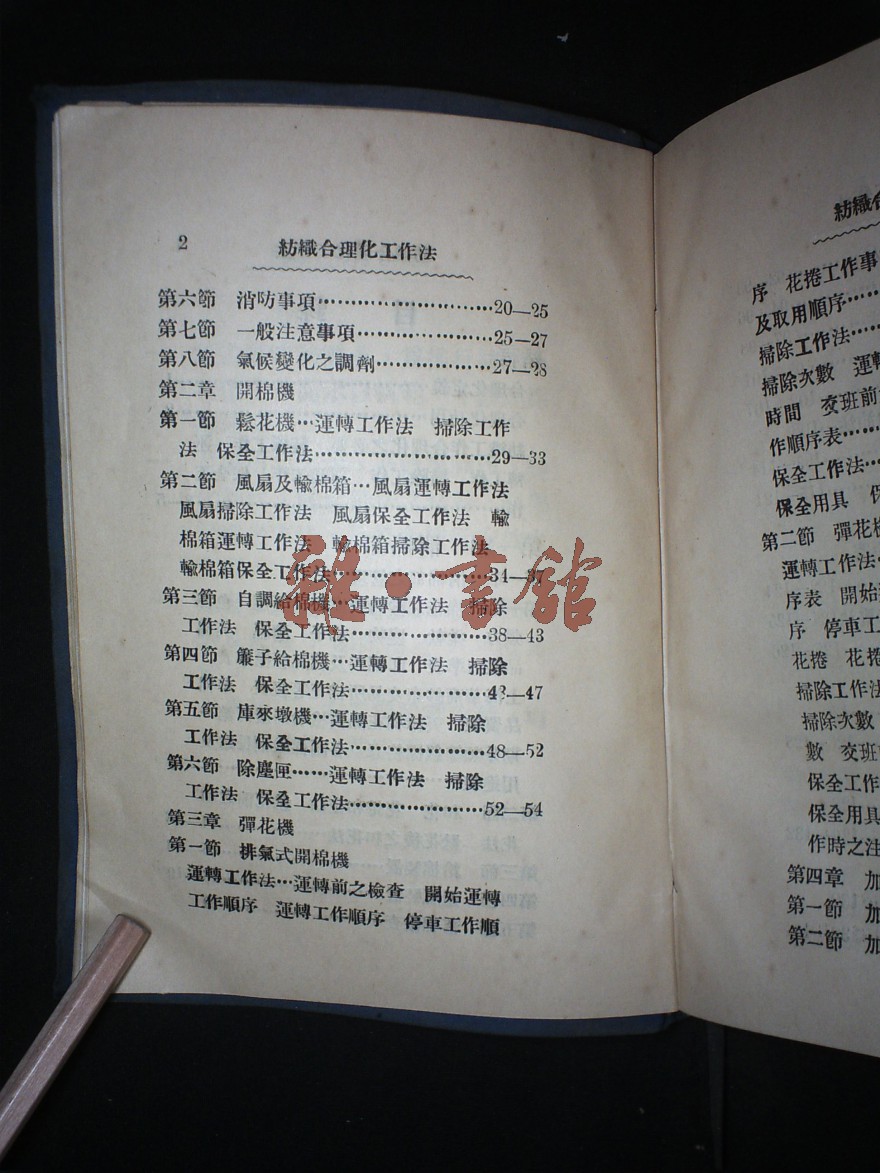 2
紡織合理化工作法
第六節 消防事項························20—25
第七節 一般注意事項··················25—27
第八節 氣候變化之調劑···············27—28
第二章 開棉機
第一節 鬆花機···運轉工作法 掃除工作
法 保全工作法························29—33
第二節 風扇及輸棉箱···風扇運轉工作法
風扇掃除工作法 風扇保全工作法 輸
棉箱運轉工作法 輸棉箱掃除工作法
輸棉箱保全工作法·····················34—37
第三節 自調給棉機···運轉工作法 掃除
工作法 保全工作法··················38—43
第四節 簾子給棉機···運轉工作法 掃除
工作法 保全工作法··················43—47
第五節 庫來墩機···運轉工作法 掃除
工作法 保全工作法··················48—52
第六節 除塵匣······運轉工作法 掃除
工作法 保全工作法··················52—54
第三章 彈花機
第一節 排氣式開棉機
運轉工作法···運轉前之檢查 開始運轉
工作順序 運轉工作順序 停車工作順
紡織合
序 花捲工作事
及取用順序······
掃除工作法······
掃除次數 運轉
時間 交班前
作順序表······
保全工作法···
保全用具
第二節 彈花機
運轉工作法·
序表 開始
序 停車工
花捲 花捲
掃除工作法
掃除次數
數 交班
保全工作
保全用具
作時之注
第四章 加
第一節 加
第二節 加
雅·書館